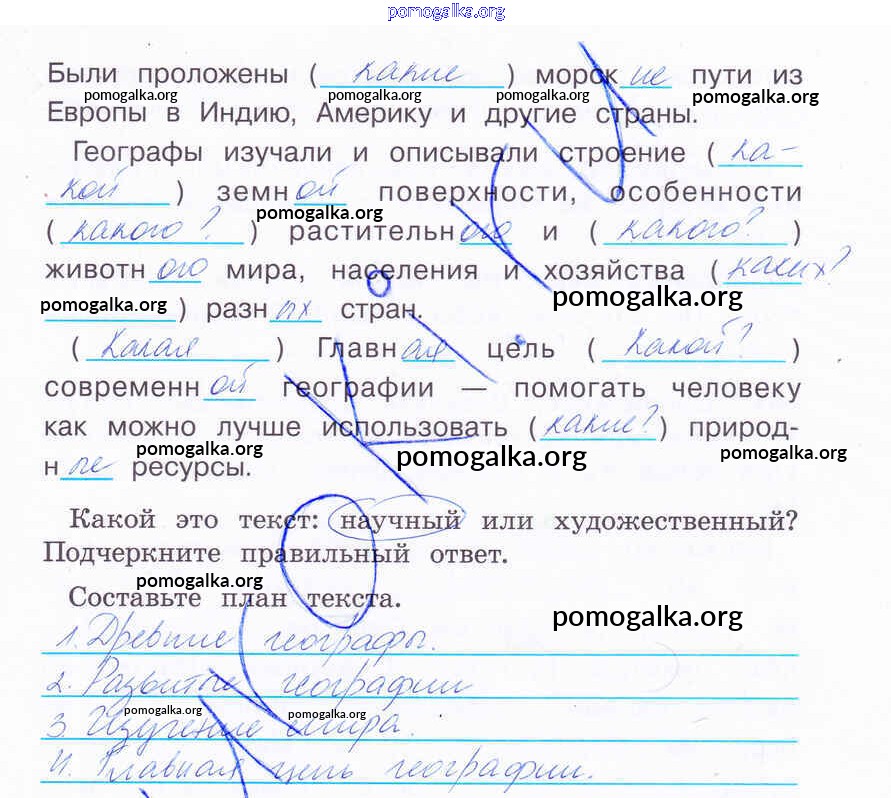 pomogalka.org
Были проложены ( какие ) морские пути из
pomogalka.org pomogalka.org pomogalka.org pomogalka.org
Европы в Индию, Америку и другие страны.
Географы изучали и описывали строение ( ка-
кой ) земной поверхности, особенности
pomogalka.org
( какого? ) растительного и ( какого? )
животного мира, населения и хозяйства ( каких?
pomogalka.org ) разных стран.
pomogalka.org
( Какая ) Главная цель ( какой? )
современной географии — помогать человеку
как можно лучше использовать ( какие? ) природ-
pomogalka.org pomogalka.org pomogalka.org
ные ресурсы.
Какой это текст: научный или художественный?
Подчеркните правильный ответ.
pomogalka.org
Составьте план текста.
pomogalka.org
1. Древние географы.
2. Развитие географии
pomogalka.org pomogalka.org
3. Изучение мира.
4. Главная цель географии.